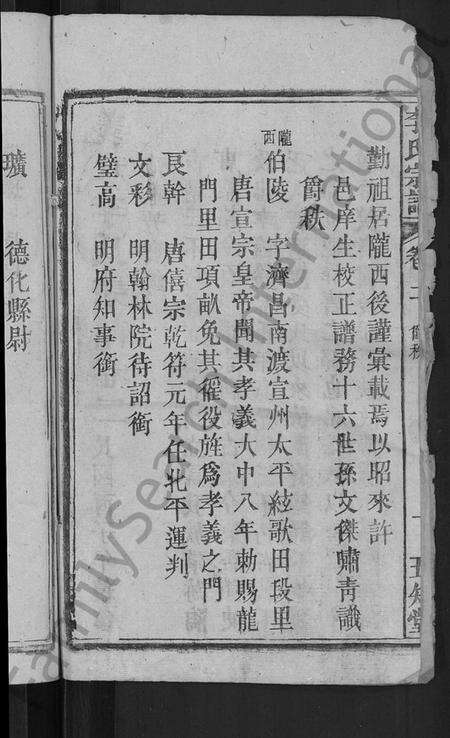 李氏宗譜 卷二 爵秩 一 五知堂
勤祖居隴西後謹彙載焉以昭來許
邑庠生校正譜務十六世孫文傑嘯青識
爵秩
隴西伯陵 字濟昌南渡宣州太平絃歌田段里
唐宣宗皇帝聞其孝義大中八年勅賜龍
門里田項畝免其徭役旌為孝義之門
良幹 唐僖宗乾符元年任北平運判
文彩 明翰林院待詔銜
璧高 明府知事銜
曠 德化縣尉
FamilySearch International